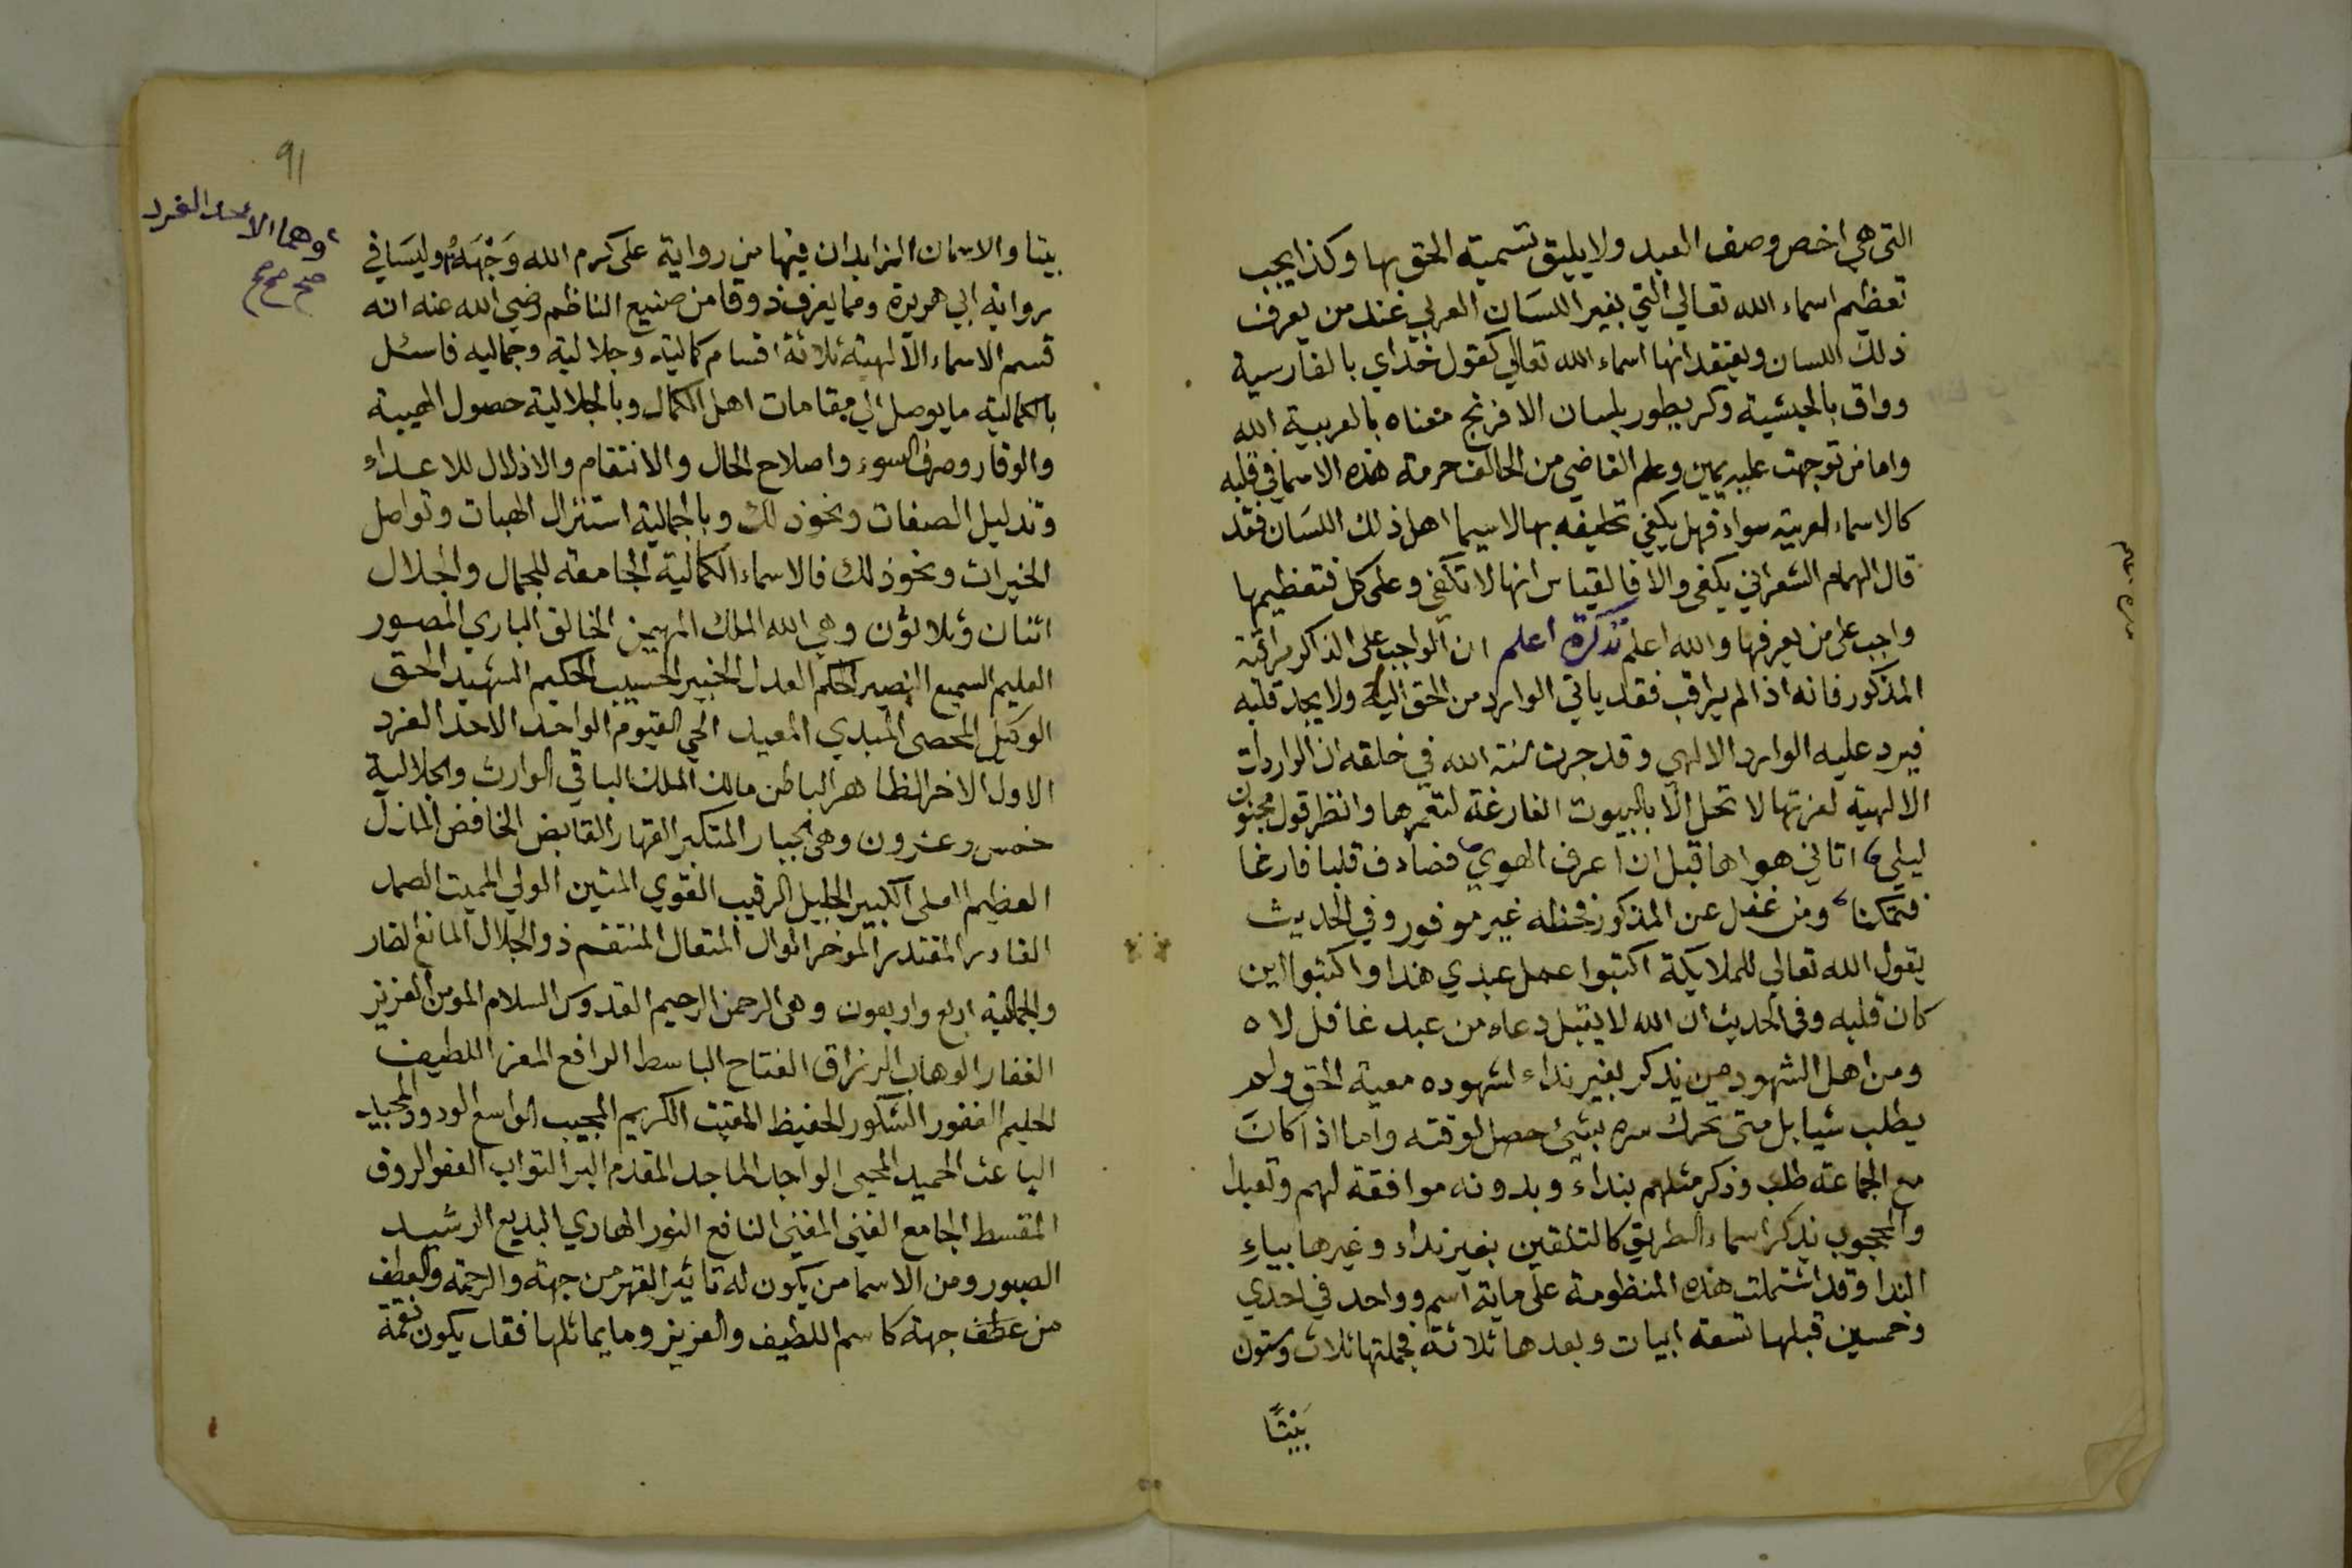 التي هي اخص وصف العبد ولا يليق تسمية الحق بها وكذا يجب
تعظيم اسماء الله تعالي التي بغير اللسان العربي عند من يعرف
ذلك اللسان ويعتقد انها اسماء الله تعالي كقول خداي بالفارسية
وواق بالحبشية وكريطور بلسان الافرنج معناه بالعربية الله
واما من توجهت عليه يمين وعلم القاضي من الحالف حرمة هذه الاسما في قلبه
كالاسماء العربية سواء فهل يكفي تحليفه بها لاسيما اهل ذلك اللسان فقد
قال الهمام الشعراني يكفي والا فالقياس انها لا تكفي وعلى كل فتعظيمها
واجب على من يعرفها والله اعلم تذكرة اعلم ان الواجب على الذاكر مراقبة
المذكور فانه اذا لم يراقب فقد ياتي الوارد من الحق اليه ولا يجد قلبه
فيرد عليه الوارد الالهي وقد جرت سنة الله في خلقه ان الواردات
الالهية لعزتها لا تحل الا بالبيوت الفارغة لتعمرها وانظر قول مجنون
ليلي اتاني هواها قبل ان اعرف الهوي فصادف قلبا فارغا
فتمكنا ومن غفل عن المذكور فحظه غير موفور وفي الحديث
يقول الله تعالي للملايكة اكتبوا عمل عبدي هذا واكتبوا اين
كان قلبه وفي الحديث ان الله لا يقبل دعاء من عبد غافل لاه
ومن اهل الشهود من يذكر بغير نداء لشهوده معية الحق ولم
يطلب شيا بل متى تحرك سره بشيئ حصل لوقته واما اذا كان
مع الجماعة طلب وذكر مثلهم بنداء وبدونه موافقة لهم وتعبدا
والمحجوب يذكر اسماء الطريق كالتلقين بغير نداء وغيرها بياء
الندا وقد اشتملت هذه المنظومة على ماية اسم وواحد في احدي
وخمسين قبلها تسعة ابيات وبعدها ثلاثة فجملتها ثلاث وستون
بَيْتًا
91
وهما الاحد الفرد
صح صح صح
بيتا والاسمان الزايدان فيها من رواية على كرم الله وَجْهَهُ وليسَا في
رواية ابي هريرة ومما يعرف ذوقا من صنيع الناظم رضي الله عنه انه
قسم الاسماء الالهية ثلاثة اقسام كمالية وجلالية وجماليه فاسئل
بالكمالية ما يوصل الي مقامات اهل الكمال وبالجلالية حصول الهيبة
والوقار وصرف السوء واصلاح الحال والانتقام والاذلال للاعداء
وتدليل الصفات ونحو ذلك وبالجمالية استنزال الهبات وتواصل
الخيرات ونحو ذلك فالاسماء الكمالية الجامعة للجمال والجلال
اثنان وثلاثون وهي الله الملك المهيمن الخالق الباري المصور
العليم السميع البصير الحكم العدل الخبير الحسيب الحكيم الشهيد الحق
الوكيل المحصي المبدي المعيد الحي القيوم الواحد الاحد الفرد
الاول الاخر الظاهر الباطن مالك الملك الباقي الوارث والجلالية
خمس وعشرون وهي الجبار المتكبر القهار القابض الخافض المذل
العظيم العلي الكبير الجليل الرقيب القوي المتين الولي المميت الصمد
القادر المقتدر الموخر الوال المتعال المنتقم ذو الجلال المانع الضار
والجمالية اربع واربعون وهي الرحمن الرحيم القدوس السلام المومن العزيز
الغفار الوهاب الرزاق الفتاح الباسط الرافع المعز اللطيف
الحليم الغفور الشكور الحفيظ المقيت الكريم المجيب الواسع الودود المجيد
الباعث الحميد المحيي الواجد الماجد المقدم البر التواب العفو الروف
المقسط الجامع الغني المغني النافع النور الهادي البديع الرشيد
الصبور ومن الاسما من يكون له تاثير القهر من جهة والرحمة والعطف
من عطف جهة كاسم اللطيف والعزيز وما يماثلها فقد يكون نقمة